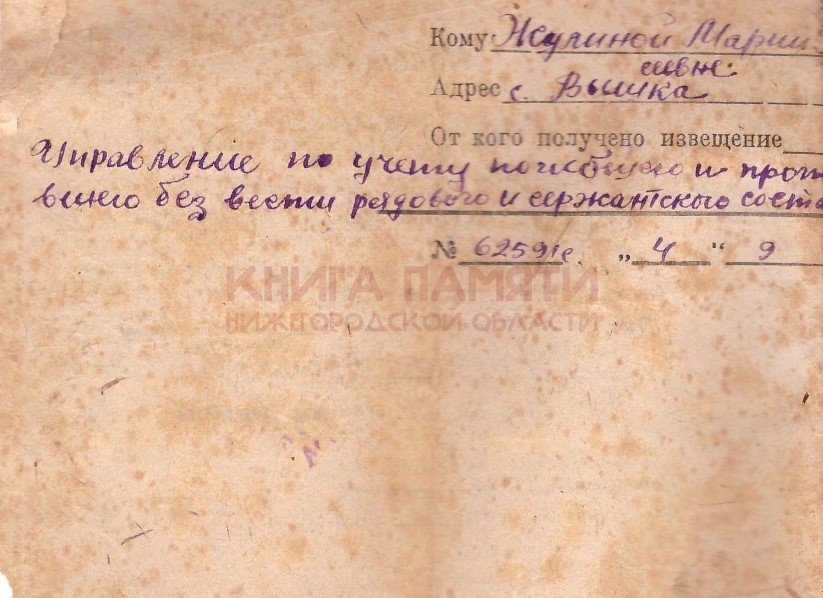 Кому Жулиной Марии
Адрес с. Вышка
От кого получено извещение
Управление по учету погибшего и проп
вшего без вести рядового и сержантского соста
№ 62591с „ 4 “ 9
КНИГА ПАМЯТИ
НИЖЕГОРОДСКОЙ ОБЛАСТИ